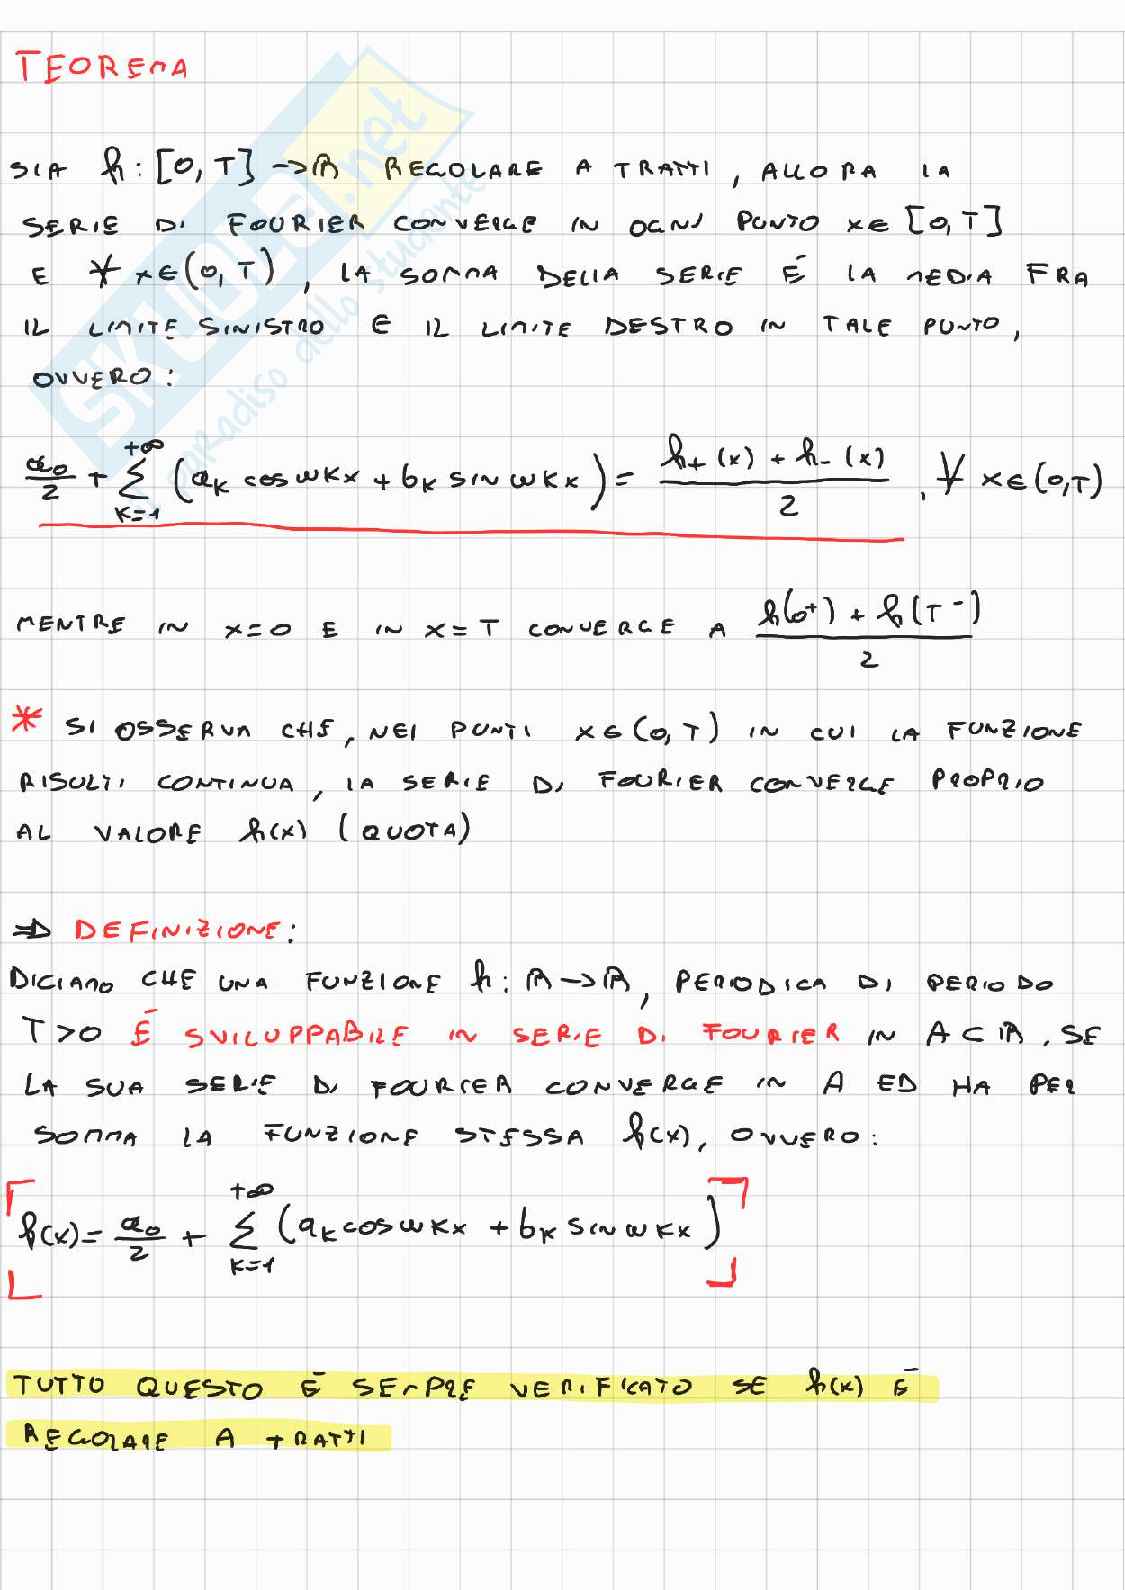 TEOREMA
SIA h: [0, T] → ℝ REGOLARE A TRATTI, ALLORA LA
SERIE DI FOURIER CONVERGE IN OGNI PUNTO x ∈ [0, T]
E ∀ x ∈ (0, T), LA SOMMA DELLA SERIE È LA MEDIA FRA
IL LIMITE SINISTRO E IL LIMITE DESTRO IN TALE PUNTO,
OVVERO:
a₀/2 + Σ_{k=1}^{+∞} (aₖ cos ωkx + bₖ sin ωkx) = (h₊(x) + h₋(x))/2, ∀ x ∈ (0, T)
MENTRE IN x=0 E IN x=T CONVERGE A (h(0⁺) + h(T⁻))/2
* SI OSSERVA CHE, NEI PUNTI x ∈ (0, T) IN CUI LA FUNZIONE
RISULTI CONTINUA, LA SERIE DI FOURIER CONVERGE PROPRIO
AL VALORE h(x) (QUOTA)
⇒ DEFINIZIONE:
DICIAMO CHE UNA FUNZIONE h: ℝ → ℝ, PERIODICA DI PERIODO
T>0 È SVILUPPABILE IN SERIE DI FOURIER IN A ⊂ ℝ, SE
LA SUA SERIE DI FOURIER CONVERGE IN A ED HA PER
SOMMA LA FUNZIONE STESSA h(x), OVVERO:
h(x) = a₀/2 + Σ_{k=1}^{+∞} (aₖ cos ωkx + bₖ sin ωkx)
TUTTO QUESTO È SEMPRE VERIFICATO SE h(x) È
REGOLARE A TRATTI
SKUOLA.net
paradiso dello studente